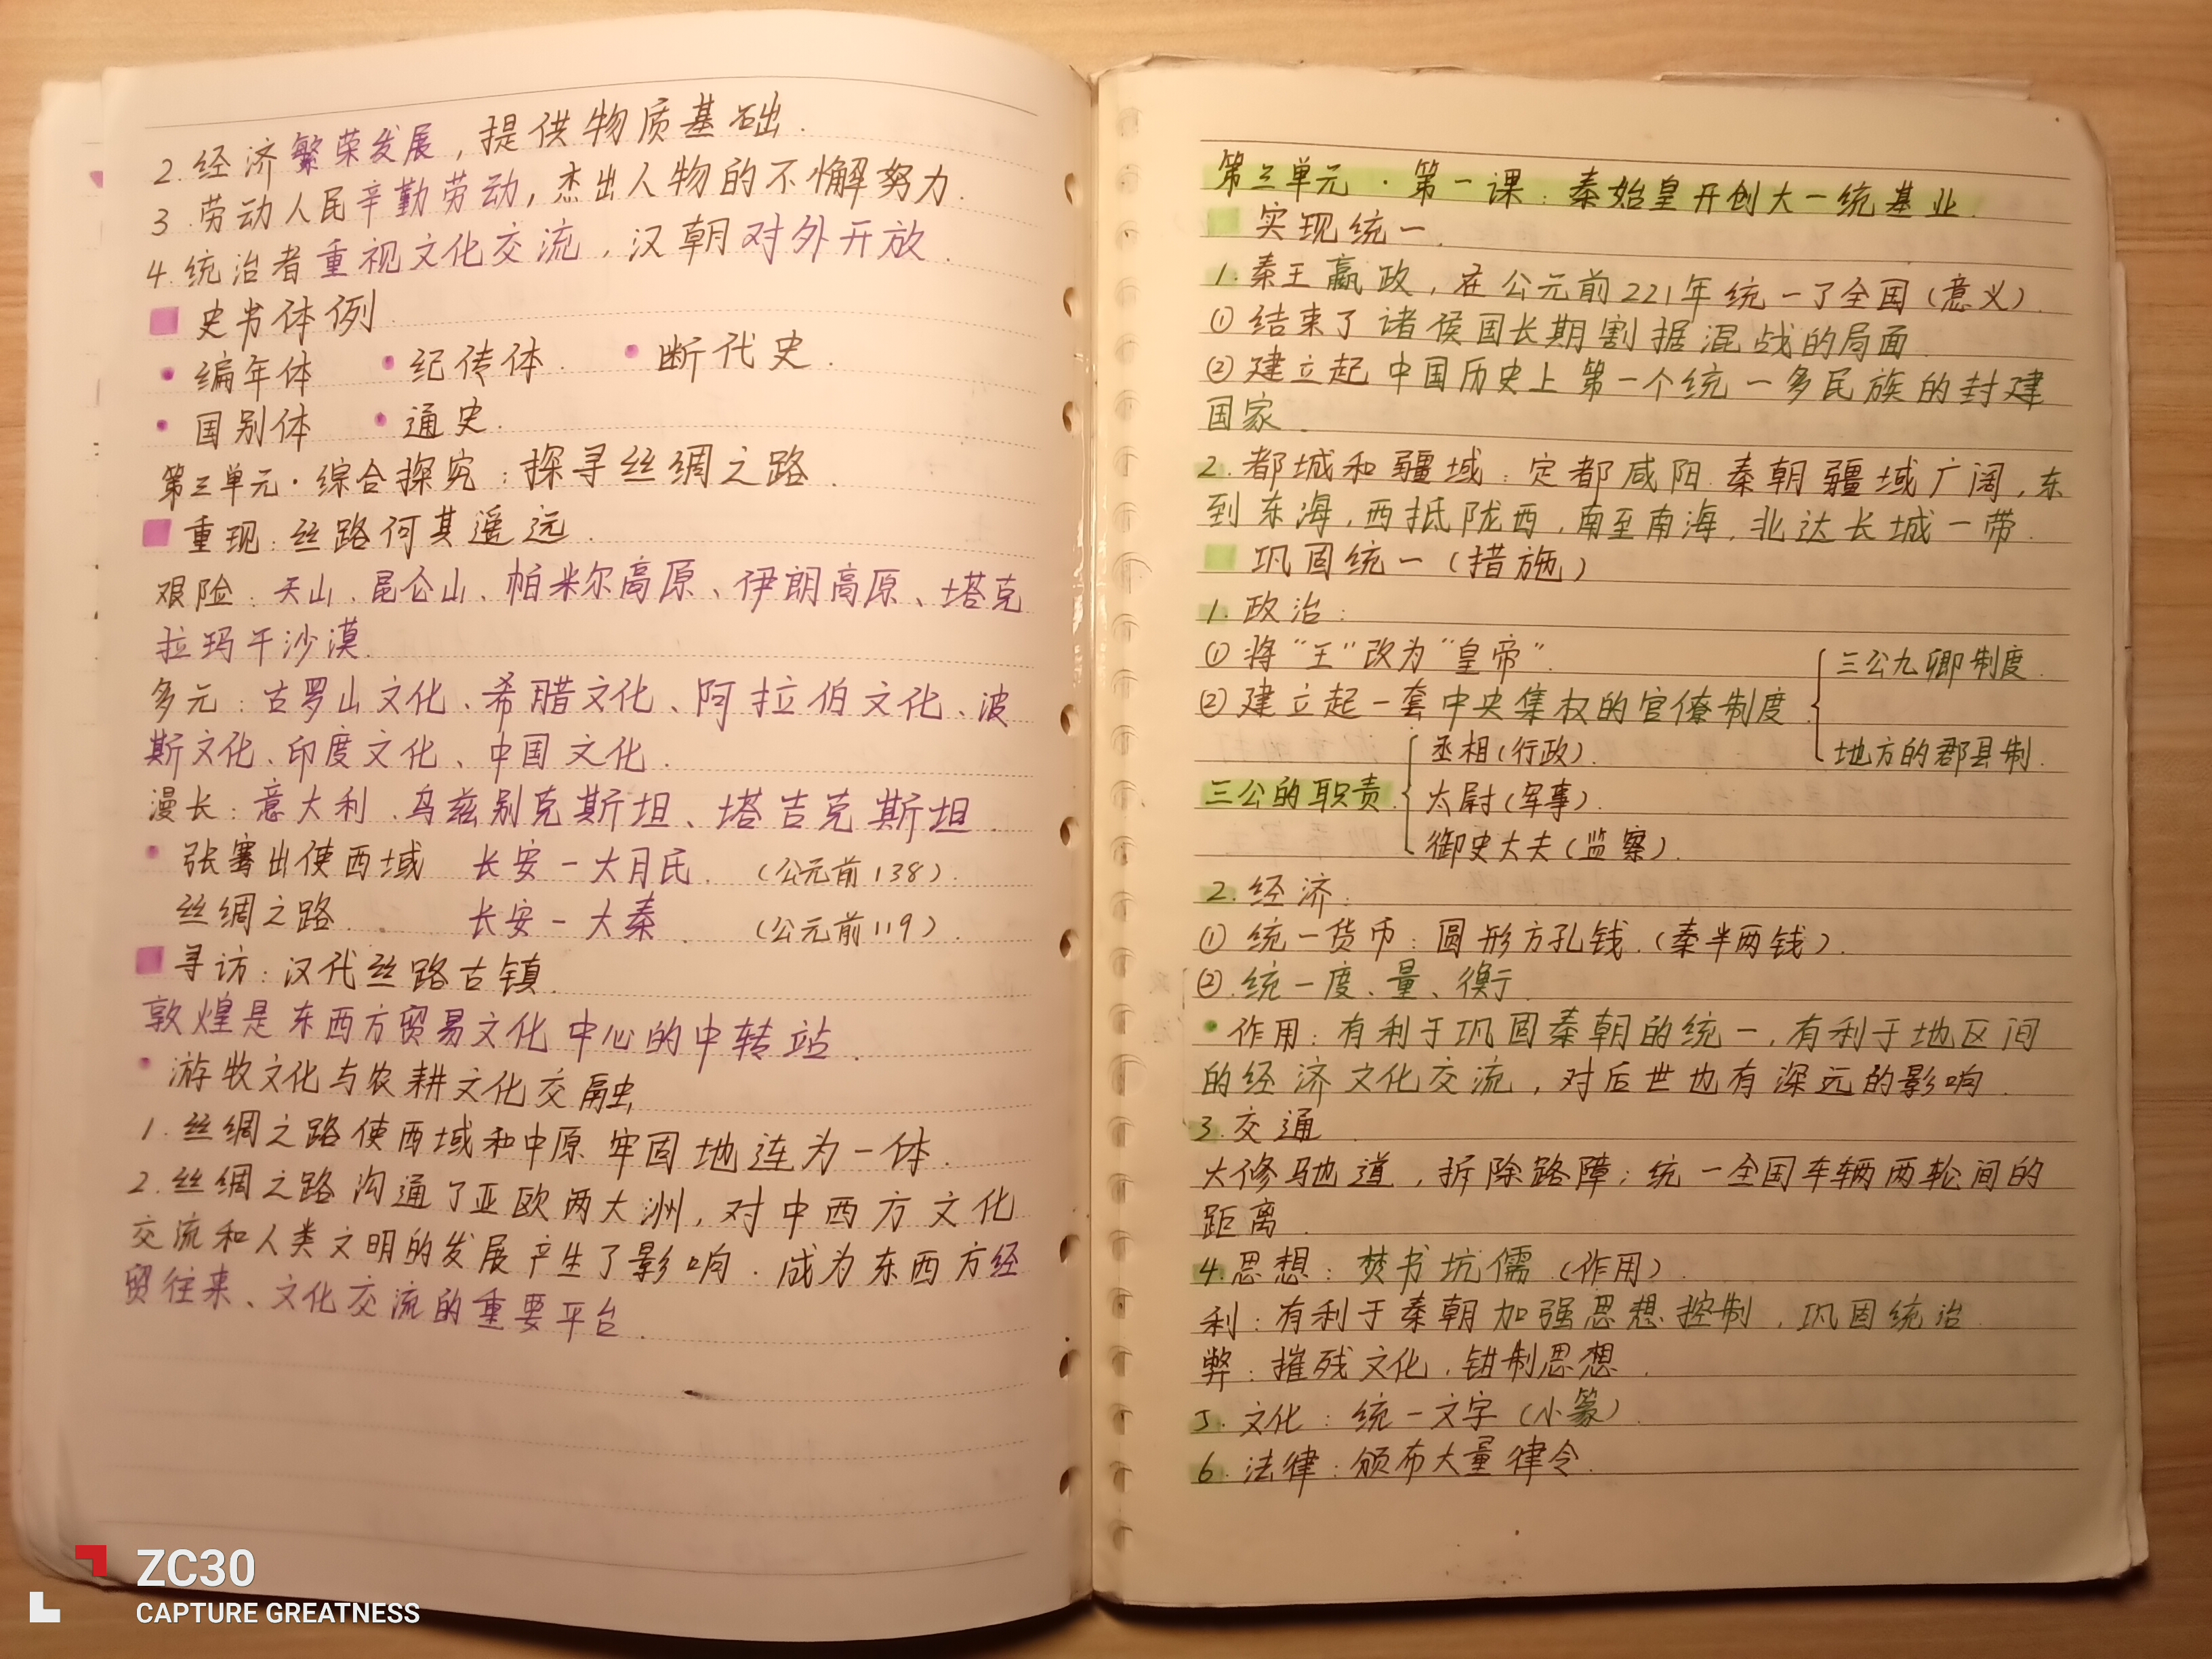 2.经济繁荣发展，提供物质基础.
3.劳动人民辛勤劳动，杰出人物的不懈努力.
4.统治者重视文化交流，汉朝对外开放.
史书体例
• 编年体 • 纪传体. • 断代史.
• 国别体 • 通史.
第三单元·综合探究：探寻丝绸之路.
重现：丝路何其遥远.
艰险：天山、昆仑山、帕米尔高原、伊朗高原、塔克
拉玛干沙漠.
多元：古罗山文化、希腊文化、阿拉伯文化、波
斯文化、印度文化、中国文化.
漫长：意大利、乌兹别克斯坦、塔吉克斯坦.
• 张骞出使西域 长安－大月氏. (公元前138).
丝绸之路. 长安－大秦. (公元前119).
寻访：汉代丝路古镇.
敦煌是东西方贸易文化中心的中转站.
• 游牧文化与农耕文化交融
1.丝绸之路使西域和中原牢固地连为一体.
2.丝绸之路沟通了亚欧两大洲，对中西方文化
交流和人类文明的发展产生了影响.成为东西方经
贸往来、文化交流的重要平台.
第三单元·第一课：秦始皇开创大一统基业.
实现统一.
1.秦王嬴政，在公元前221年统一了全国(意义).
①结束了诸侯国长期割据混战的局面.
②建立起中国历史上第一个统一多民族的封建
国家.
2.都城和疆域：定都咸阳.秦朝疆域广阔，东
到东海，西抵陇西，南至南海，北达长城一带.
巩固统一(措施)
1.政治：
①将“王”改为“皇帝”.
②建立起一套中央集权的官僚制度. { 三公九卿制度. 地方的郡县制.
三公的职责. { 丞相(行政).
太尉(军事).
御史大夫(监察).
2.经济：
①统一货币：圆形方孔钱.(秦半两钱).
②.统一度、量、衡.
• 作用：有利于巩固秦朝的统一，有利于地区间
的经济文化交流，对后世也有深远的影响.
3.交通.
大修驰道，拆除路障；统一全国车辆两轮间的
距离.
4.思想：焚书坑儒(作用).
利：有利于秦朝加强思想控制，巩固统治.
弊：摧残文化，钳制思想.
5.文化：统一文字(小篆).
6.法律：颁布大量律令.
ZC30
CAPTURE GREATNESS